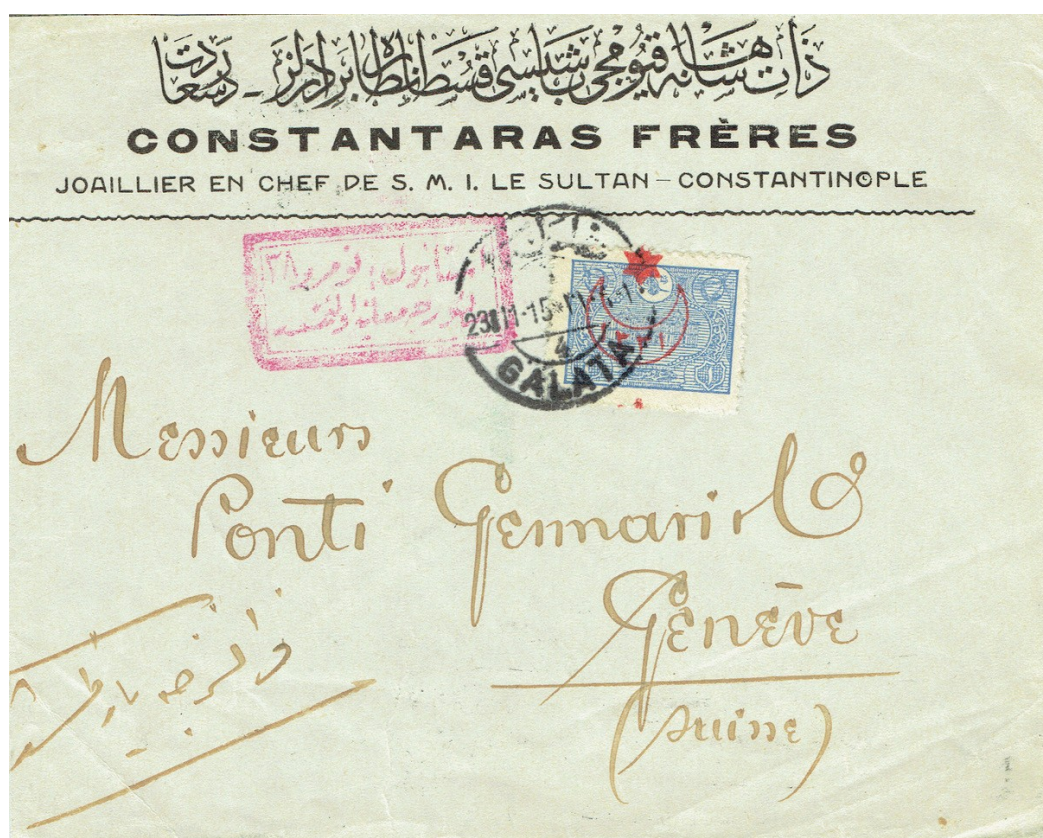 ذات شاهانه قیومجی باشیسی قسطانطاراس برادرلر - درسعادت
CONSTANTARAS FRÈRES
JOAILLIER EN CHEF DE S. M. I. LE SULTAN – CONSTANTINOPLE
23 11-15
4
GALATA
٣٣١
Messieurs
Ponti Gennari & C
Genève
(Suisse)
فرانسزجه يازلمشدر